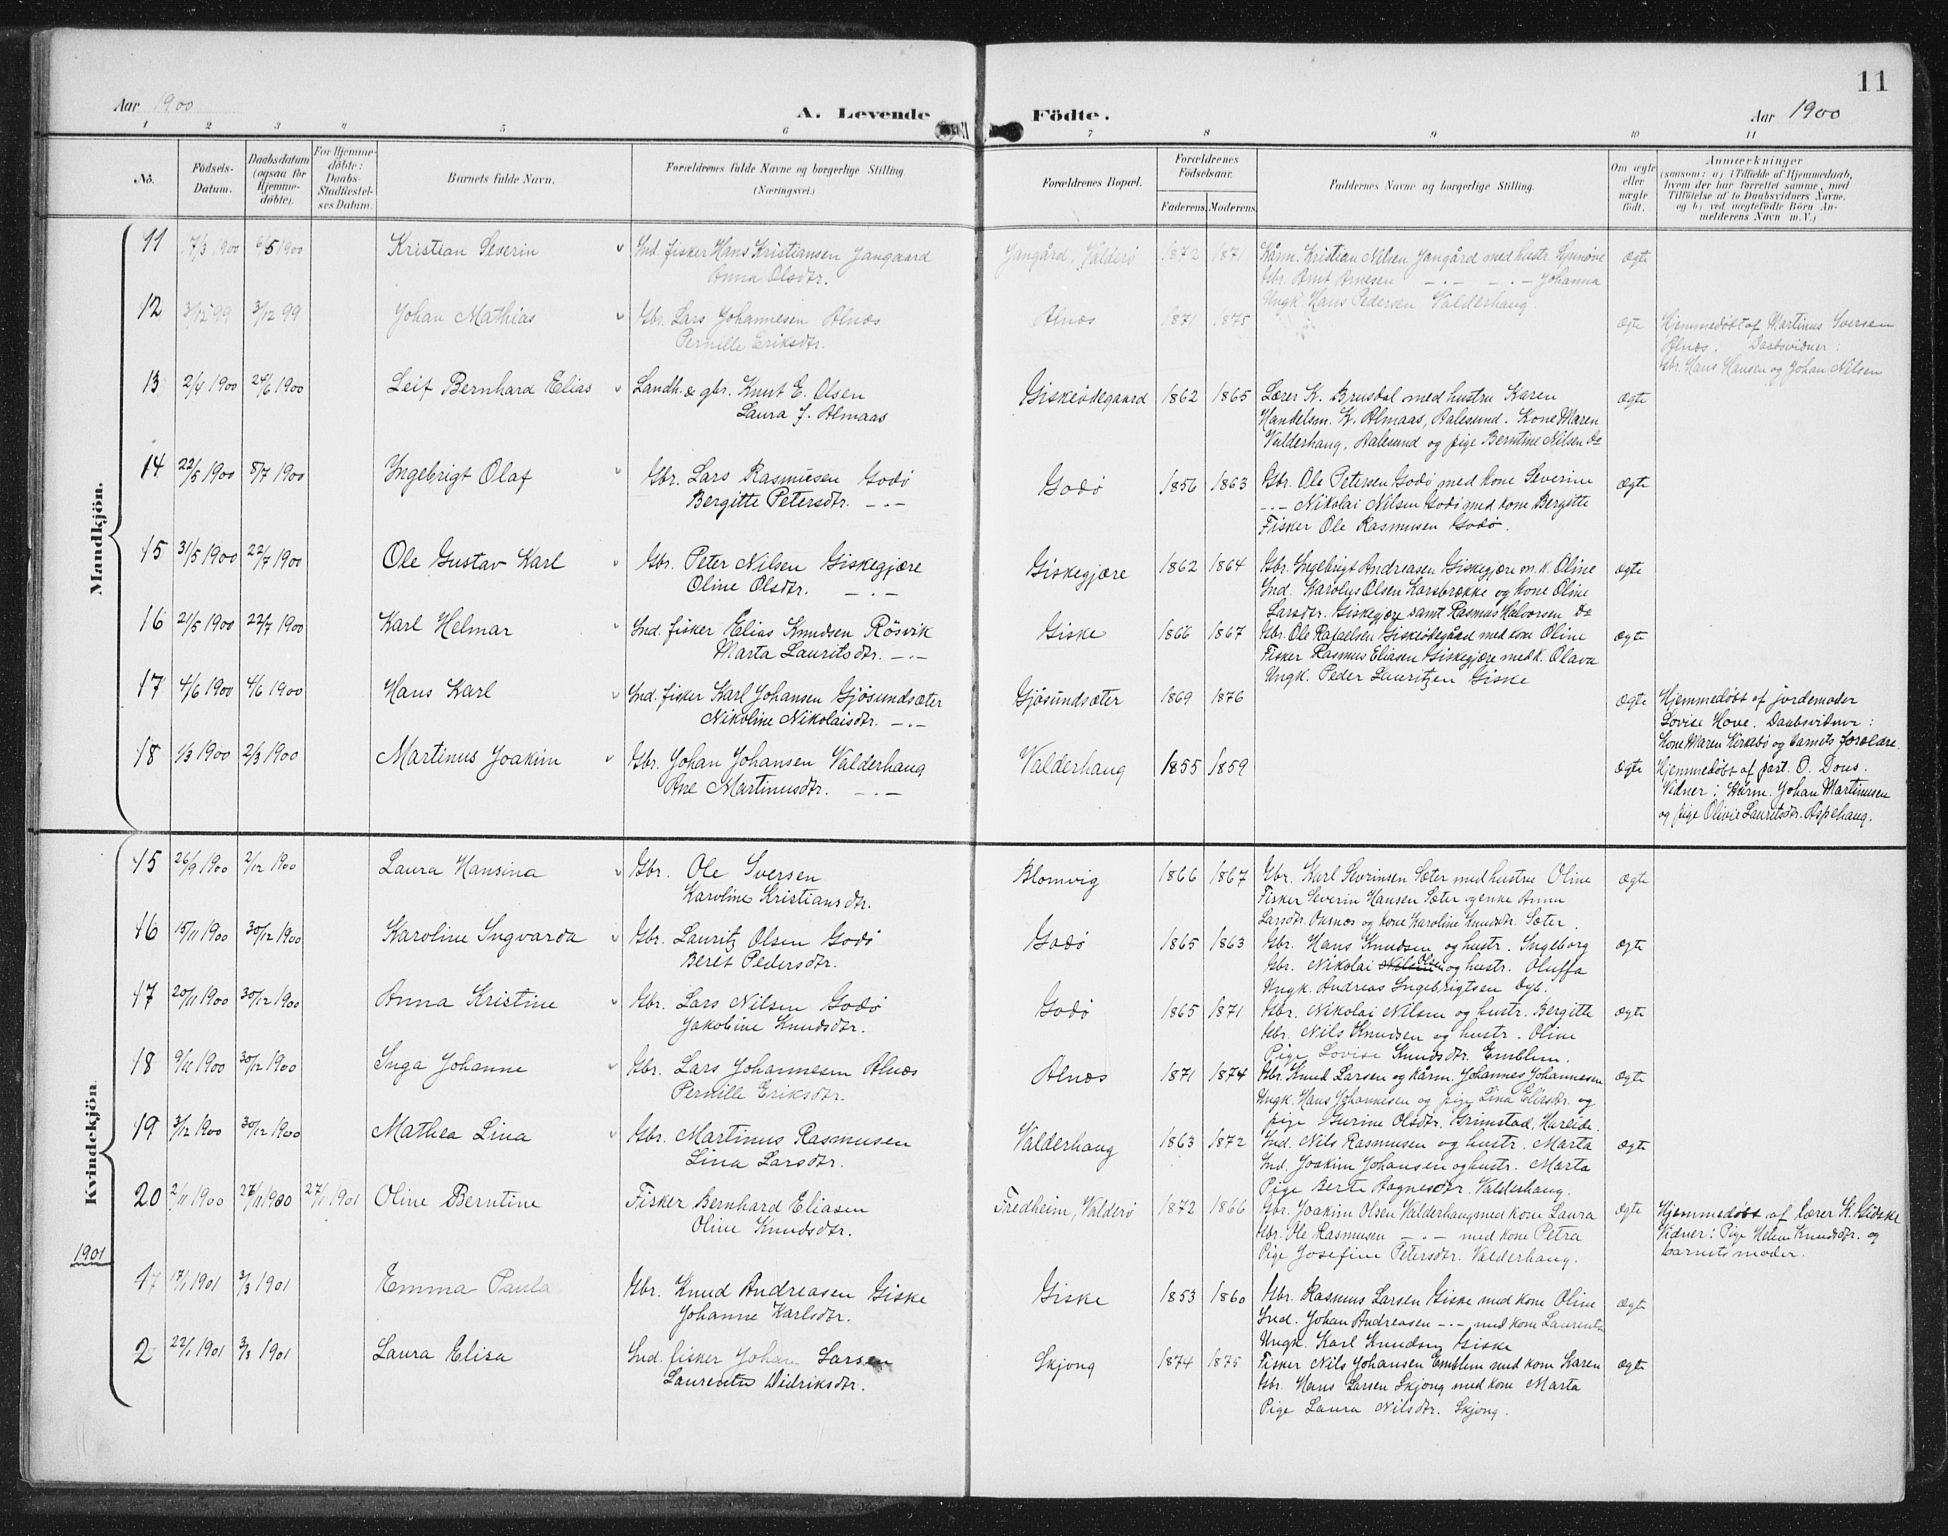 Aar 1900
A. Levende Födte.
Aar 1900
11
1 2 3 4 5 6 7 8 9 10 11
No.
Födsels-Datum.
Daabsdatum (ogsaa for Hjemmedöbte).
For Hjemmedöbte: Daabs-Stadfæstelses Datum.
Barnets fulde Navn.
Forældrenes fulde Navne og borgerlige Stilling
(Næringsvei.)
Forældrenes Bopæl.
Forældrenes Födselsaar.
Faderens. Moderens.
Faddernes Navne og borgerlige Stilling.
Om ægte eller uægte födt.
Anmærkninger
(saasom: a) i Tilfælde af Hjemmedaab,
hvem der har forrettet samme, med
Tilföielse af to Daabsvidners Navne.
og b) ved uægtefödte Börn Anmelderens Navn m. V.)
Mandkjön.
11 17/3 1900 6/5 1900 Kristian Severin Ind. fisker Hans Kristiansen Jangaard Jangård, Valderö 1872 1871 Kårm. Kristian Nilsen Jangård med hustr. Synnöve ægte
Anna Olsdtr. Gbr. Arnt Arnesen —.— —.— Johanna
Ungk. Hans Pedersen Valderhaug
12 3/12 99 3/12 99 Johan Mathias Gbr. Lars Johannesen Alnæs Alnæs 1871 1875 ægte Hjemmedöbt af Martinus Iversen
Pernille Eriksdtr. Alnæs. Daabsvidner:
Gbr. Hans Hansen og Johan Nilsen
13 2/4 1900 24/6 1900 Leif Bernhard Elias Landh. & gbr. Knut E. Olsen Giskeödegaard 1862 1865 Lærer K. Brusdal med hustru Karen ægte
Laura J. Almaas Handelsm. K. Almaas, Aalesund. Kone Maren
Valderhaug, Aalesund og pige Berntine Nilsen do
14 22/5 1900 8/7 1900 Ingebrigt Olaf Gbr. Lars Rasmusen Godö Godö 1856 1863 Gbr. Ole Petersen Godö med kone Severine ægte
Bergitte Petersdtr. —.— —.— Nikolai Nilsen Godö med kone Bergitte
Fisker Ole Rasmusen Godö.
15 31/5 1900 22/7 1900 Ole Gustav Karl Gbr. Peter Nilsen Giskegjære Giskegjære 1862 1864 Gbr. Ingebrigt Andreasen Giskegjære m. k. Oline ægte
Oline Olsdtr. —.— Ind. Karolus Olsen Karsbrække og kone Oline
Larsdtr. Giskegjære samt Rasmus Halvorsen do
16 21/5 1900 22/7 1900 Karl Helmar Ind. fisker Elias Knudsen Rösvik Giske 1866 1867 Gbr. Ole Rafaelsen Giskeödegård med kone Oline ægte
Marta Lauritsdtr. —.— Fisker Rasmus Eliasen Giskegjære med k. Olava
Ungk. Peder Lauritzen Giske
17 4/6 1900 4/6 1900 Hans Karl Ind. fisker Karl Johansen Gjösundsæter Gjösundsæter 1869 1876 ægte Hjemmedöbt af jordemoder
Nikoline Nikolaisdtr. —.— Lovise Hove. Daabsvidner:
Kone Maren Kirkebö og barnets forældre.
18 1/3 1900 2/3 1900 Martinus Joakim Gbr. Johan Johansen Valderhaug Valderhaug 1855 1859 ægte Hjemmedöbt af part. O. Dous.
Ane Martinusdtr. —.— Vidner: Kårm. Johan Martinusen
og pige Olivie Lauritsdtr. Aspehaug.
Kvindekjön.
15 26/9 1900 2/12 1900 Laura Hansina Gbr. Ole Iversen Blomvig 1866 1867 Gbr. Karl Severinsen Sæter med hustru Oline ægte
Karoline Kristiansdtr. Fisker Severin Hansen Sæter og enke Anna
Larsdtr. Oksnæs og kone Karoline Knudsdtr. Sæter.
16 15/11 1900 30/12 1900 Karoline Ingvarda Gbr. Lauritz Olsen Godö Godö 1865 1863 Gbr. Hans Knudsen og hustr. Ingeborg ægte
Beret Pedersdtr. Gbr. Nikolai Nilsen Olsen og hustr. Oluffa
Ungk. Andreas Ingebrigtsen Dyb.
17 20/11 1900 30/12 1900 Anna Kristine Gbr. Lars Nilsen Godö Godö 1865 1871 Gbr. Nikolai Nilsen og hustr. Bergitte ægte
Jakobine Knudsdtr. Gbr. Nils Knudsen og hustr. Oline
Pige Lovise Knudsdtr. Emblem.
18 9/12 1900 30/12 1900 Inga Johanne Gbr. Lars Johannesen Alnæs Alnæs 1871 1874 Gbr. Knud Larsen og kårm. Johannes Johannesen ægte
Pernille Eriksdtr. Ungk. Hans Johannesen og pige Lina Eliasdtr. og
pige Gurine Olsdtr. Grimstad, Hareide.
19 3/12 1900 30/12 1900 Mathea Lina Gbr. Martinus Rasmusen Valderhaug 1863 1872 Ind. Nils Rasmusen og hustr. Marta ægte
Lina Larsdtr. Ind. Joakim Johansen og hustr. Marta
Pige Berte Aagnesdtr. Valderhaug.
20 2/11 1900 27/11 1900 27/1 1901 Oline Berntine Fisker Bernhard Eliasen Fredheim, Valderö 1872 1866 Gbr. Joakim Olsen Valderhaug med kone Laura ægte Hjemmedöbt af lærer K. Gidske
Oline Knudsdtr. Gbr. Ole Rasmusen —.— med kone Petra Vidner: Pige Helene Knudsdtr. og
Pige Josefine Petersdtr. Valderhaug. barnets moder.
1901
1 17/1 1901 3/3 1901 Emma Paula Gbr. Knud Andreasen Giske Giske 1853 1860 Gbr. Rasmus Larsen Giske med kone Oline ægte
Johanne Karlsdtr. Ind. Johan Andreasen —.— med kone Laurentse
Ungk. Karl Knudsen Giske
2 22/1 1901 3/3 1901 Laura Elisa Ind. fisker Johan Larsen Skjong 1874 1875 Fisker Nils Johansen Emblem med kone Karen ægte
Laurentse Didriksdtr. Gbr. Hans Larsen Skjong med kone Marta
Pige Laura Nilsdtr. Skjong.